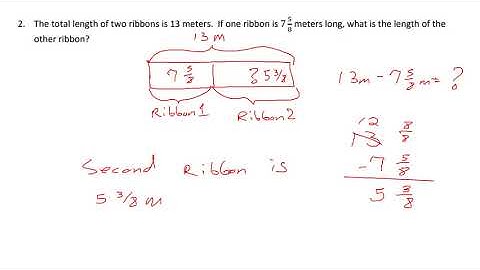 2. The total length of two ribbons is 13 meters. If one ribbon is 7 5/8 meters long, what is the length of the
other ribbon?
13 m
7 5/8 ? 5 3/8
Ribbon 1 Ribbon 2
13m - 7 5/8 m = ?
12
13 8/8
-7 5/8
5 3/8
Second Ribbon is
5 3/8 m